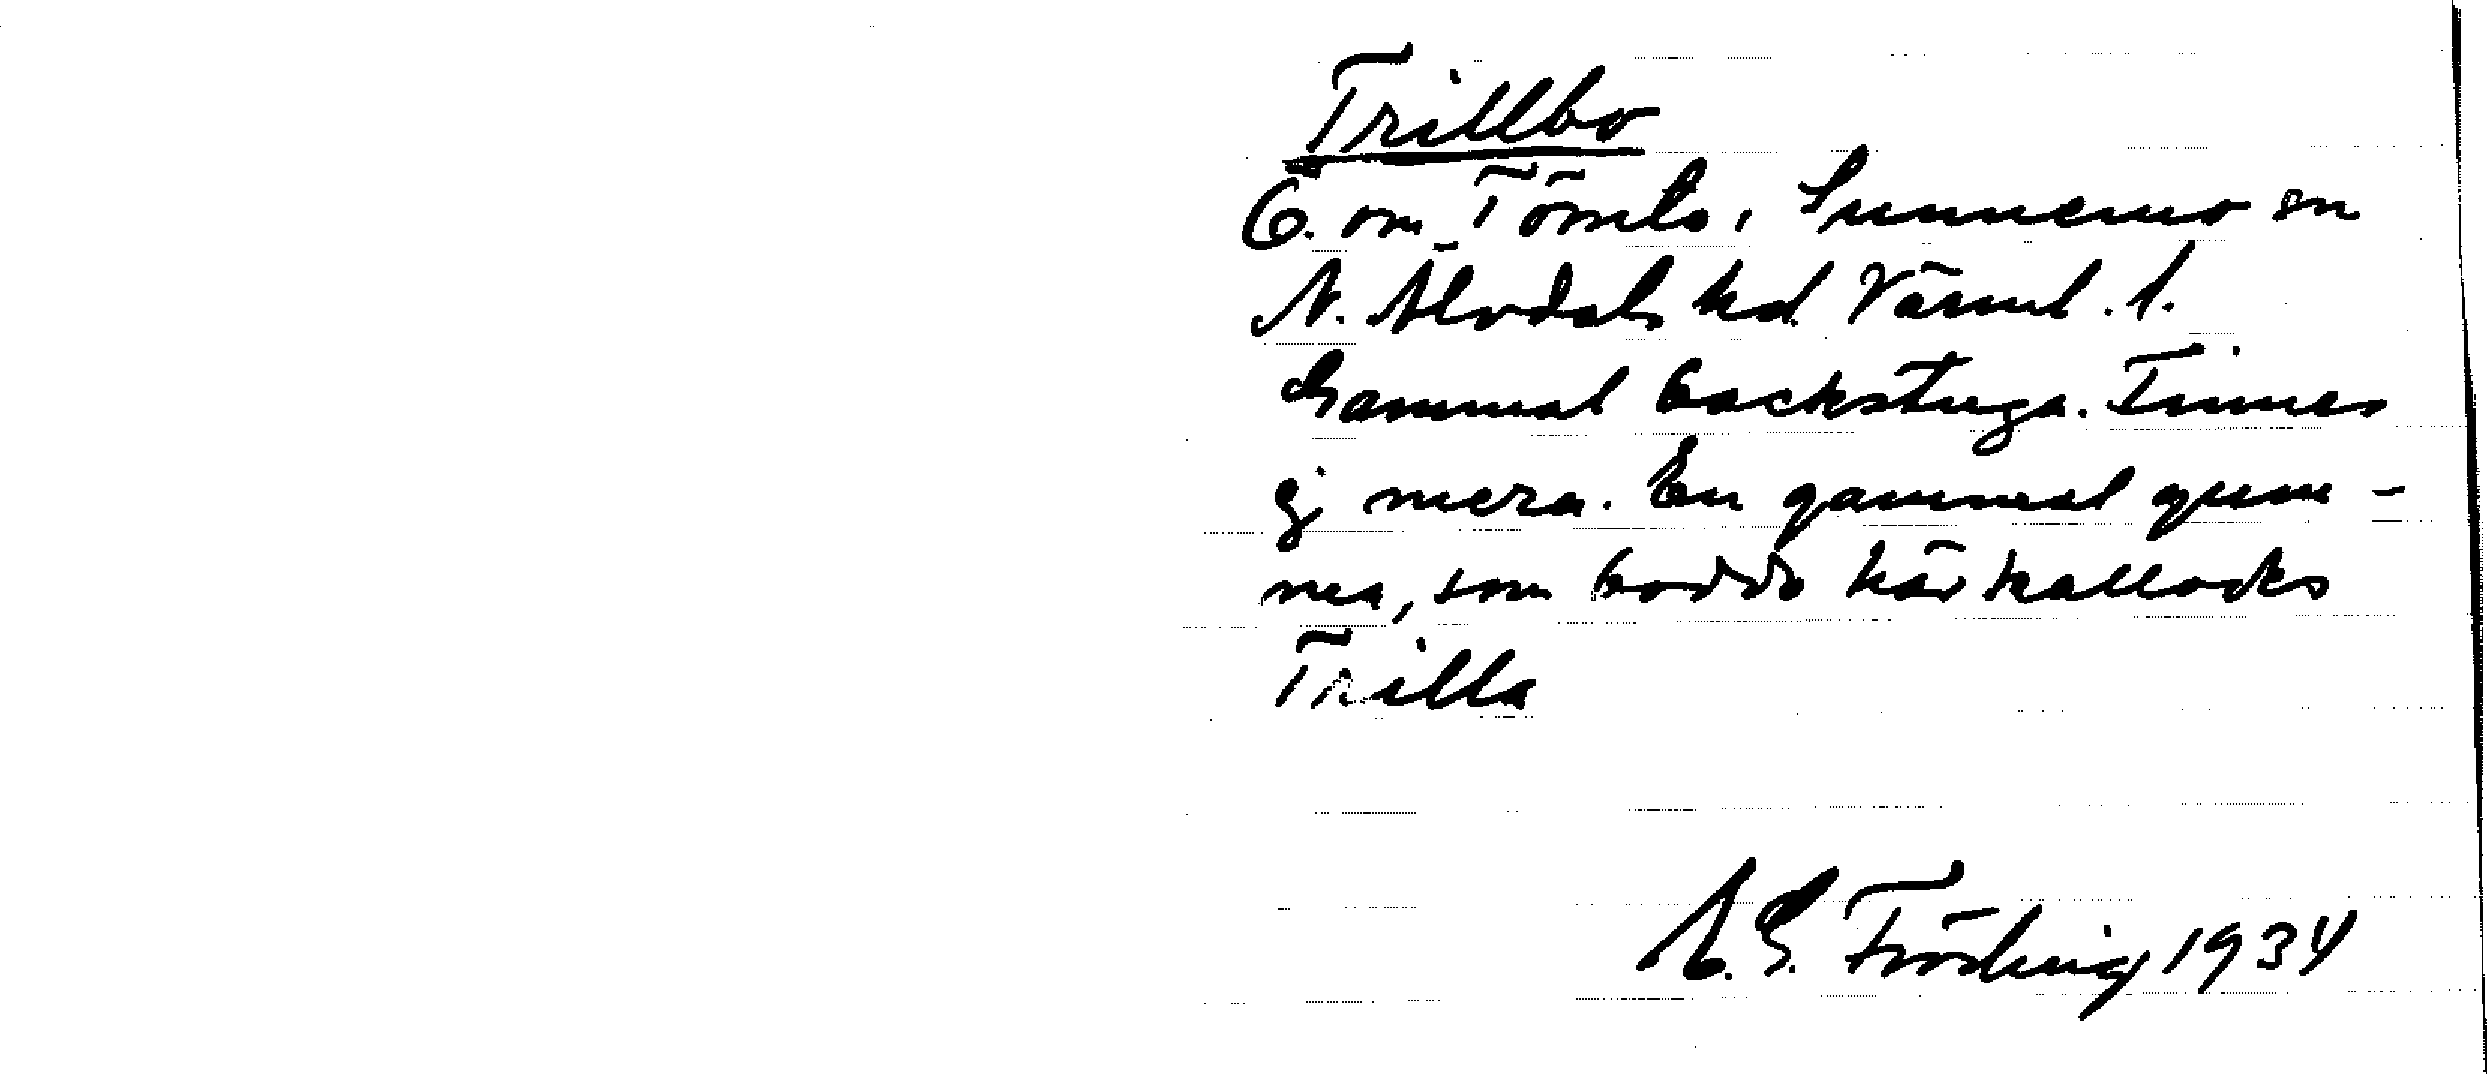 Trillbo
Ö. om Tömta, Sunnemo sn
N. Älvdals hd. Värml. l.
Gammal backstuga. Finnes
ej mera. En gammal qvin-
na, som bodde här kallades
Trilla
A. G. Fröding 1934